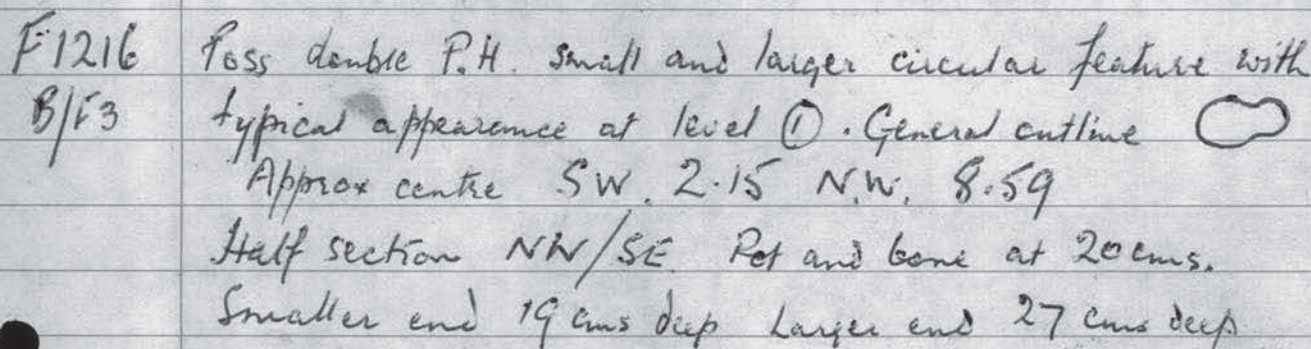 F1216 Poss double P.H. small and larger circular feature with
B/F3 typical appearance at level ①. General outline
Approx centre SW. 2.15 N.W. 8.59
Half section NW/SE. Pot and bone at 20 cms.
Smaller end 19 cms deep Larger end 27 cms deep